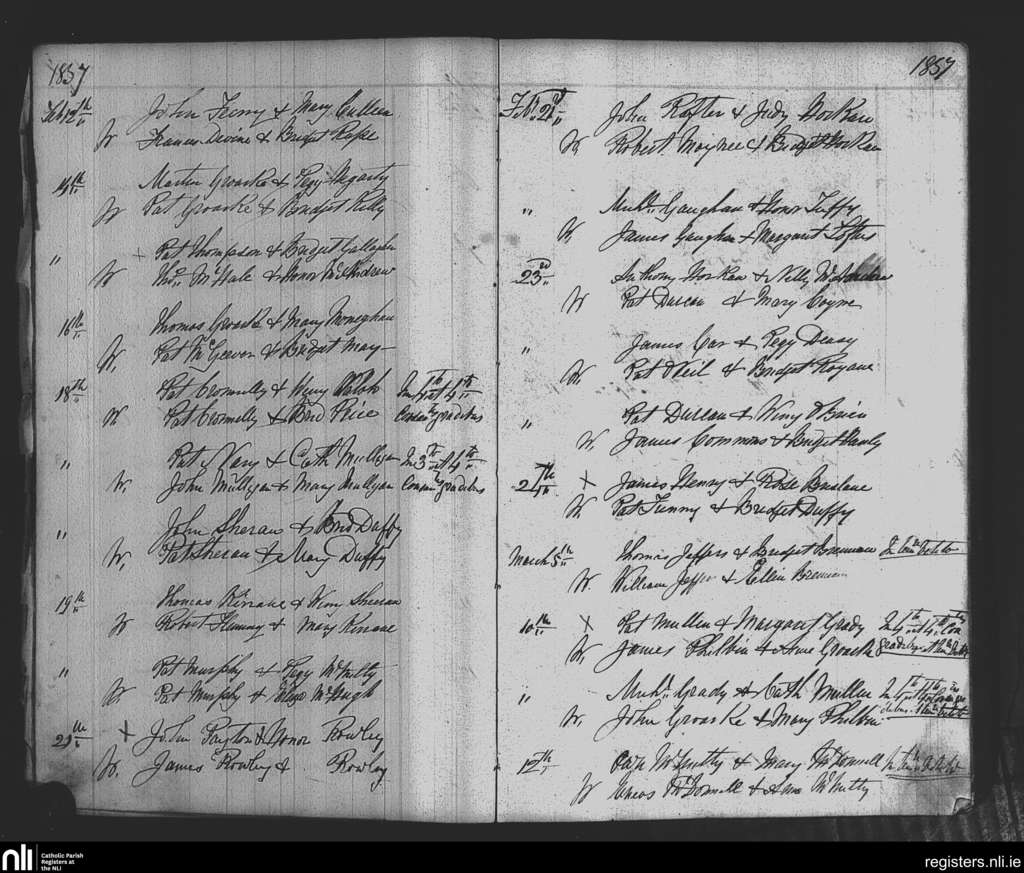 1857
Feb 12th John Feeny & Mary Cullen
W Francis Devine & Bridget Rope
14th Martin Groarke & Pegy Hegarty
W Pat Groarke & Bridget Kelly
" + Pat Thompson & Bridget Gallagher
W Thos. McHale & Honor McAndrew
16th Thomas Groarke & Mary Moneghan
W, Pat McGeever & Bridget May
18th Pat Cromelly & Winy Walsh In 4th et 4th
W Pat Cromelly & Brid Price Consan. gradibus
" Pat Nary & Cath Mulligan In 3th et 4th
W, John Mulligan & Mary Mulligan Consan. gradibus
" John Sheran & Brid Duffy
W, Pat Sheran & Mary Duffy
19th Thomas Kirrane & Winy Sheeran
W Robert Flemmy & Mary Kirrane
" Pat Murphy & Pegy McNulty
W Pat Murphy & McHugh
21th + John Payton & Honor Rowley
W. James Rowley & Rowley
1857
Feb. 21st John Rafter & Judy Horkan
W, Robert Moynee & Bridget Horkan
" Michl. Gaughan & Honor Tuffy
W, James Gaughan & Margaret Loftus
23rd Anthony Horkan & Nelly
W Pat Durcan & Mary Coyne
" James Car & Pegy Deasy
W, Pat Oheil & Bridget Royane
" Pat Durcan & Winy O'Brien
W, James Commons & Bridget Hanly
24th + James Henry & Rose Breslane
W Pat Funny & Bridget Duffy
March 5th Thomas Jeffers & Bridget Brennan
W. William Jeffers & Ellin Brennan
10th + Pat Mullen & Margaret Grady In 4th et 4th Con
W, James Philbin & Anne Groarke
" Michl. Grady & Cath Mullin
W, John Groarke & Mary Philbin
12th McNulty & Mary McDonnell
W McDonnell & Ann McNulty
nli Catholic Parish
Registers at
the NLI
registers.nli.ie